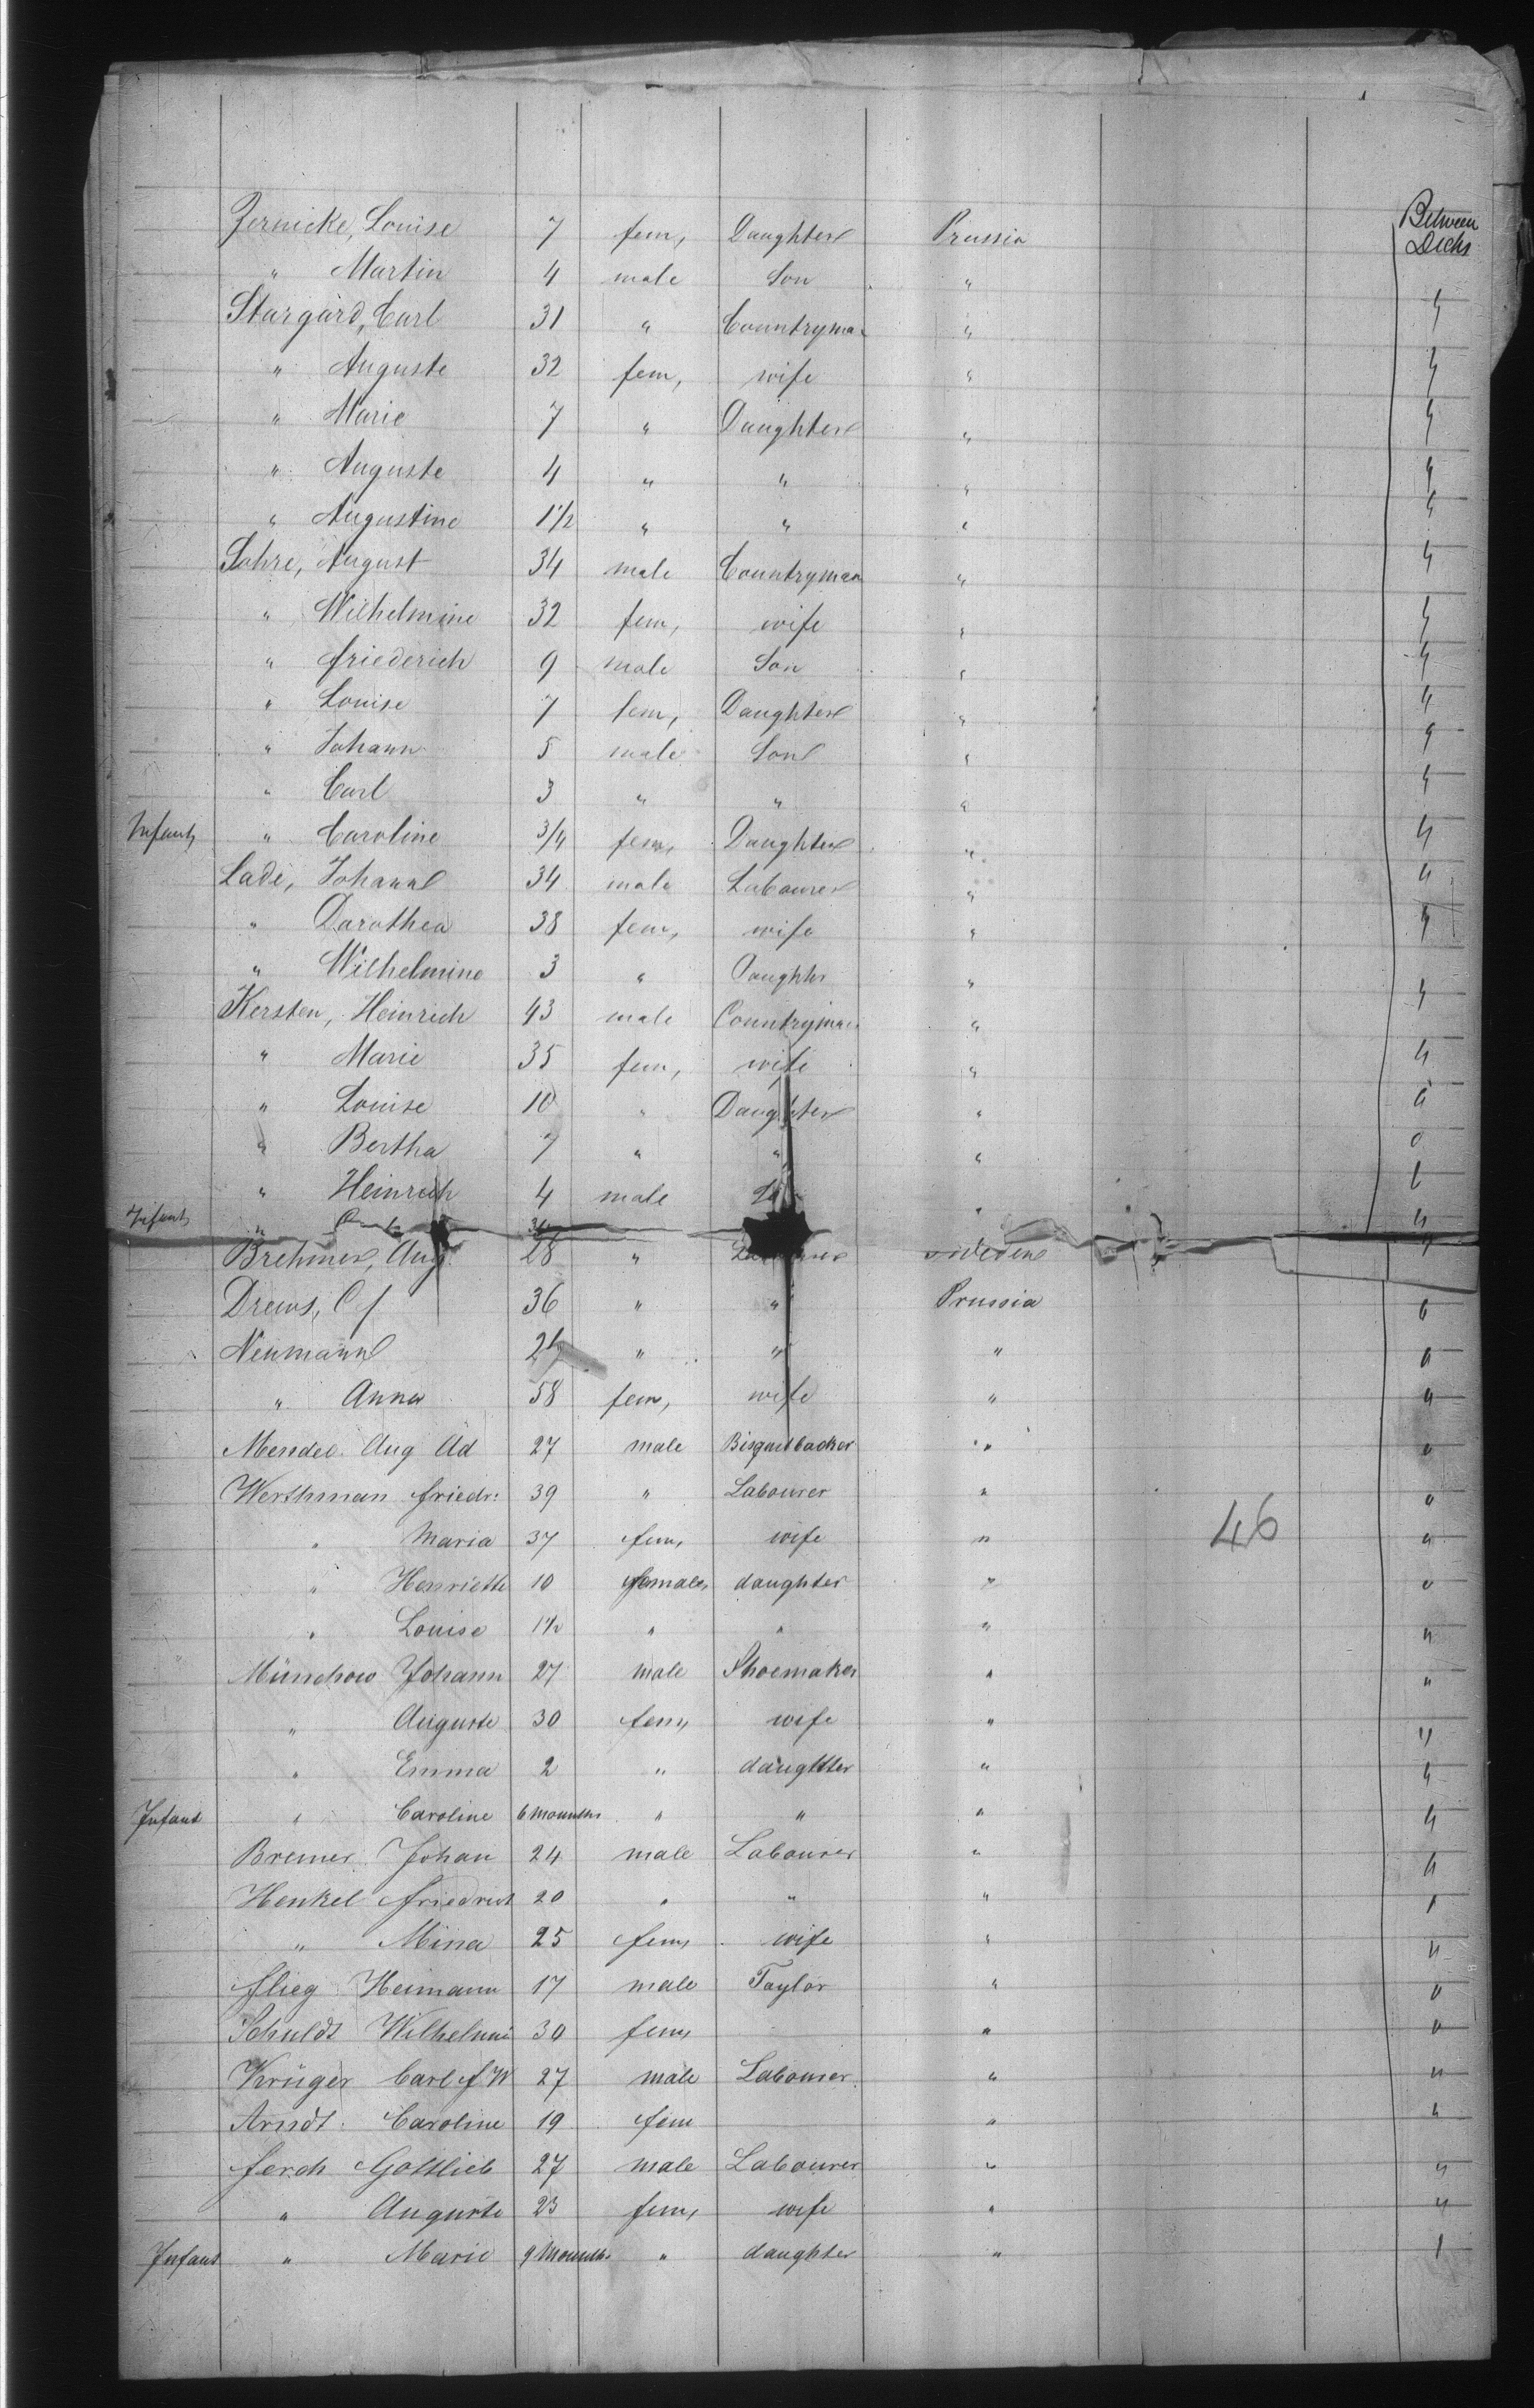 Between
Decks
Zernicke, Louise 7 fem, Daughter Prussia
" Martin 4 male Son " "
Stargard, Carl 31 " Countryman " "
" Auguste 32 fem, wife " "
" Marie 7 " Daughter " "
" Auguste 4 " " " "
" Augustine 1 1/2 " " " "
Sohre, August 34 male Countryman " "
" Wilhelmine 32 fem, wife " "
" friederich 9 male Son " "
" Louise 7 fem, Daughter " "
" Johann 5 male Son " "
" Carl 3 " " " "
Infant " Caroline 3/4 fem, Daughter " "
Lade, Johann 34 male Labourer " "
" Dorothea 38 fem, wife " "
" Wilhelmine 3 " Daughter " "
Kersten, Heinrich 43 male Countryman " "
" Marie 35 fem, wife " "
" Louise 10 " Daughter " "
" Bertha 7 " " " "
" Heinrich 4 male " "
Infant " " "
Brehmer, Aug 28 " Labourer Sweden "
Drews, C f 36 " " Prussia "
Neumann " " " "
" Anna 58 fem, wife " "
Mendee Aug Ad 27 male Bisquitbacker " "
Werthman friedr: 39 " Labourer " "
" Maria 37 fem, wife " " 46
" Henriette 10 females daughter " "
" Louise 1 1/2 " " " "
Münchow Johann 27 male Shoemaker " "
" Auguste 30 fem, wife " "
" Emma 2 " daughter " "
Infant " Caroline 6 Mounths " " " "
Bremer Johan 24 male Labourer " "
Henkel friedrich 20 " " " "
" Mina 25 fem, wife " "
flieg Heimann 17 male Taylor " "
Schuldt Wilhelmi 30 fem, " "
Krüger Carl f W 27 male Labourer " "
Arndt Caroline 19 fem " "
ferch Gottlieb 27 male Labourer " "
" Auguste 23 fem, wife " "
Infant " Marie 9 Mounths " daughter " "